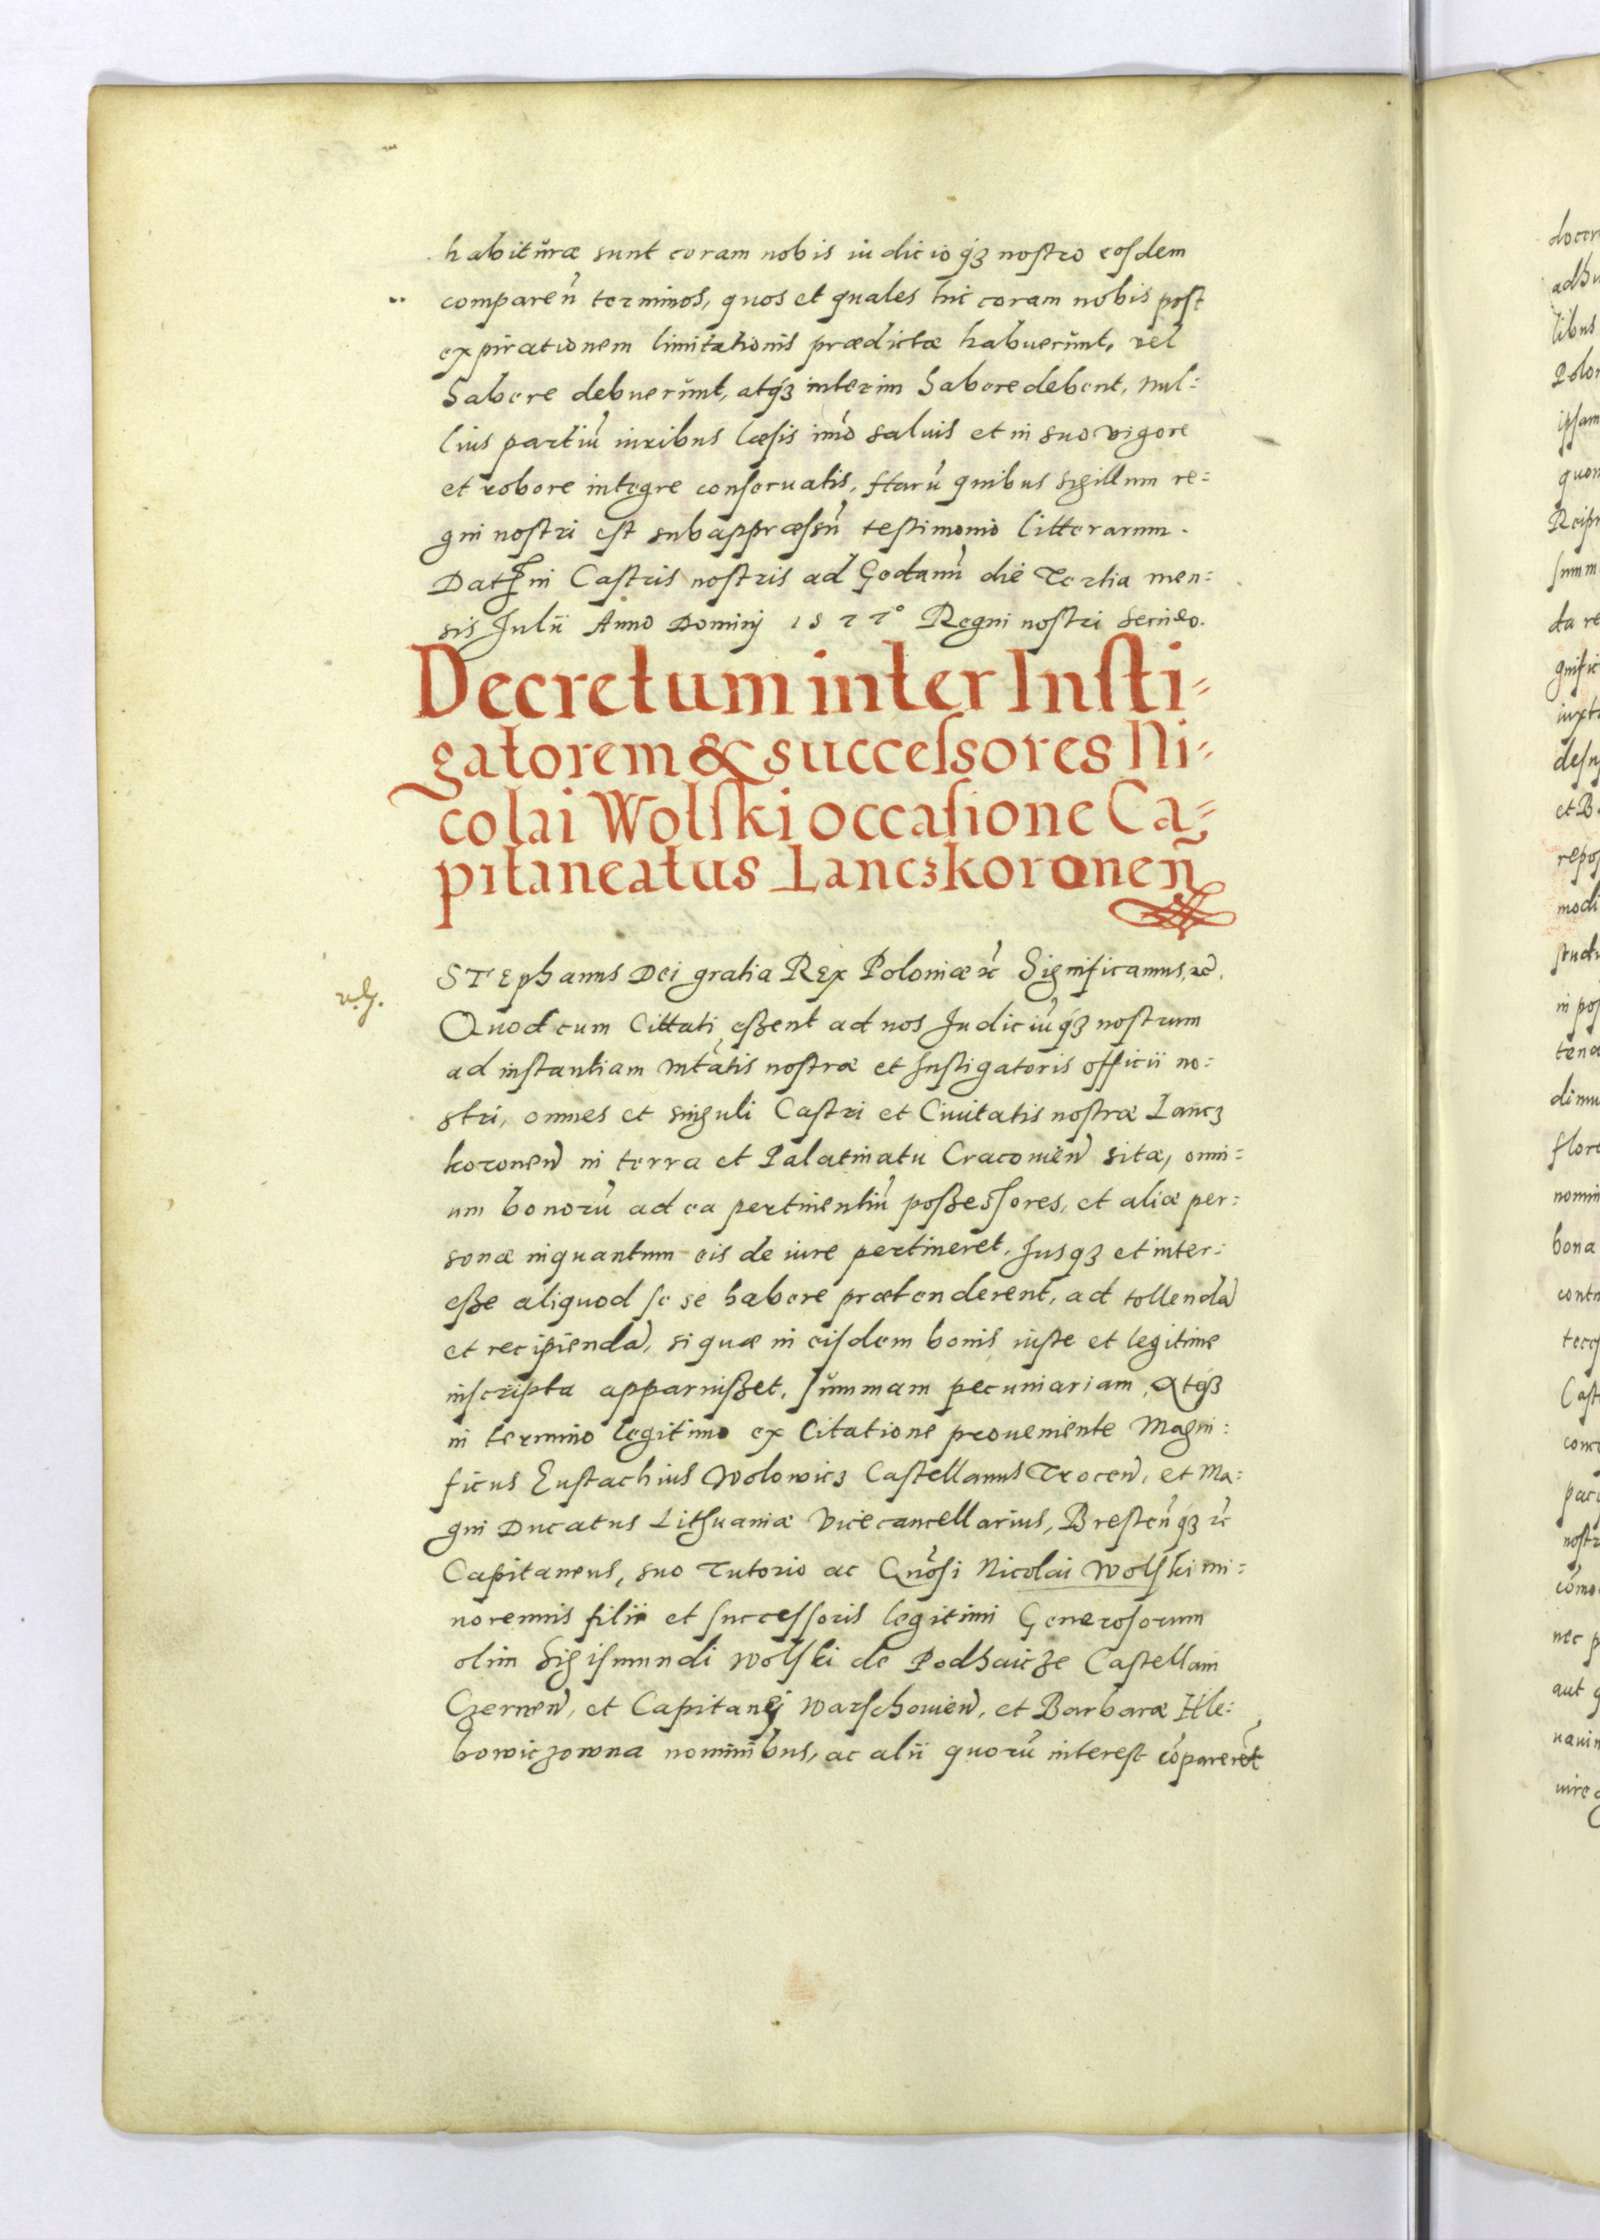 habituræ sunt coram nobis iudicioq́ꝫ nostro eosdem
compareñ terminos, quos et quales hic coram nobis post
expirationem limitationis prædictæ habuerūnt, vel
habere debuerūnt, atq́ꝫ interim habere debent, nul:
lius partiū iuribus læsis imò saluis et in suo vigore
et robore integre conseruatis, Harū quibus sigillum re:
gni nostri est subappræssū testimonio litterarum.
Dat in Castris nostris ad Gedanū die Tertia men:
sis Julii Anno Dominj 1577° Regni nostri secūdo.
Decretum inter Insti-
gatorem & successores Ni-
colai Wolski occasione Ca-
pitaneatus Lanczkoroneñ
STEphanus Dei gratia REx Poloniæ ꝛc Significamus, ꝛc.
Quod cum Cittati eßent ad nos Judiciūq́ꝫ nostrum
ad instantiam Mtãtis nostræ et Instigatoris officii no:
stri, omnes et singuli Castri et Ciuitatis nostræ Lancz
koroneñ in terra et Palatinatu Cracouieñ sitæ, omni:
um bonorū ad ea pertinentiū poßessores, et aliæ per:
sonæ inquantum eis de iure pertineret, Jusqꝫ et inter:
eße aliquod se se habere prætenderent, ad tollendã
et recipiendã, si quæ in eisdem bonis iuste et legitime
inscripta apparuißet, sūmmam pecuniariam, Atqꝫ
in termino legitimo ex Citatione proueniente Magni:
ficus Eustachius Wolowicz Castellanus Troceñ, et Ma:
gni Ducatus Lithuaniæ Vicecancellarius, Bresteñq́ꝫ ꝛc
Capitaneus, suo Tutorio ac Gñosi Nicolai Wolski mi:
norennis filii et successoris legitimi Generosorum
olim Sigismundi Wolski de Podhaicze Castellani
Czerneñ, et Capitanej Warschouieñ, et Barbaræ Hle:
bowiczowna nominibus, ac alii quorū interest cōparerēt